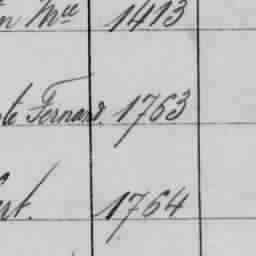 n Mce 1413
te Fernand. 1763
ert. 1764